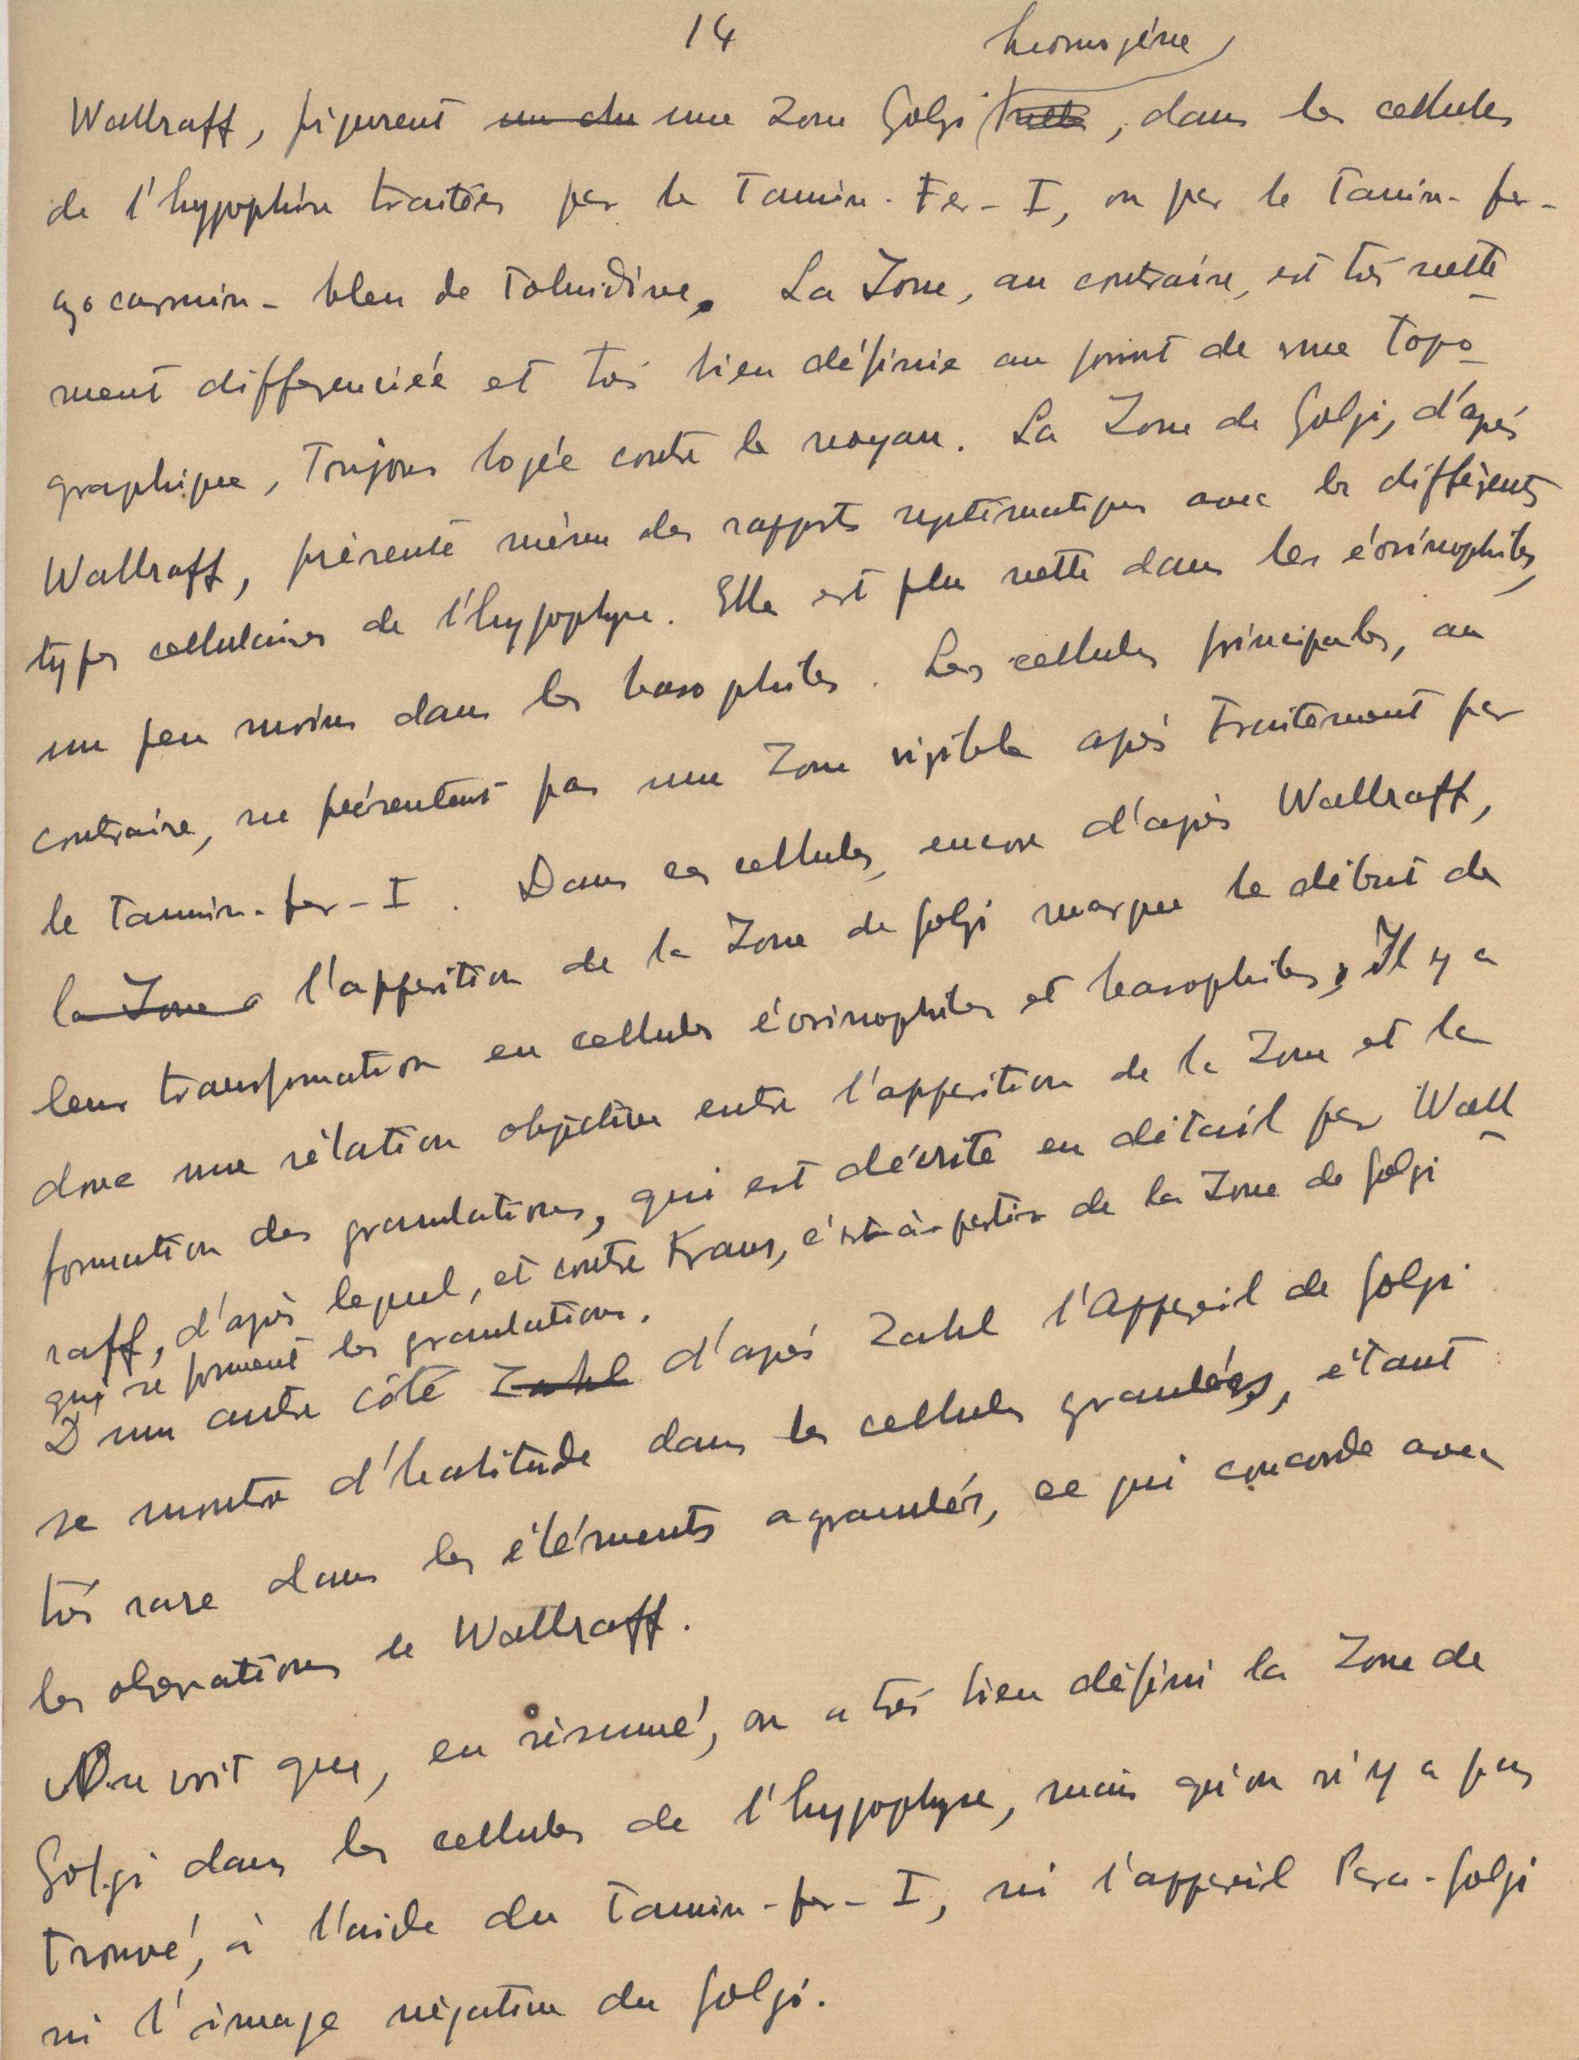 14
homogène
Wallraff, figurent un du une zone Golgi nette, dans les cellules
de l'hypophèse traitées par le Tannin-Fer-I, ou par le Tannin-fer-
azocarmin-bleu de Toluidine. La Zone, au contraire, est très nette-
ment différenciéé et très bien définie au point de vue topo-
graphique, Toujours logée contre le noyau. La Zone de Golgi, d'après
Wallraff, présente même des rapports systématiques avec les différents
types cellulaires de l'hypophyse. Elle est plus nette dans les éosinophiles,
un peu moins dans les basophiles. Les cellules principales, au
contraire, ne présentent pas une Zone visible après traitement par
le Tannin-fer-I. Dans ces cellules, encore d'après Wallraff,
la Zone l'apparition de la Zone de Golgi marque le début de
leur transformation en cellules éosinophiles et basophiles, Il y a
donc une rélation objective entre l'apparition de la Zone et la
formation des granulations, qui est décrite en détail par Wall-
raff, d'après lequel, et contre Kraus, c'est à partir de la Zone de Golgi
qui se forment les granulations.
D'un autre côté Zahl d'après Zahl l'Appareil de Golgi
se montre d'habitude dans les cellules granulées, étant
très rare dans les éléments agranulés, ce qui concorde avec
les observations de Wallraff.
On voit que, en résumé, on a très bien défini la Zone de
Golgi dans les cellules de l'hypophyse, mais qu'on n'y a pas
trouvé, à l'aide du Tannin-fer-I, ni l'appareil Para-Golgi
ni l'image négative du Golgi.